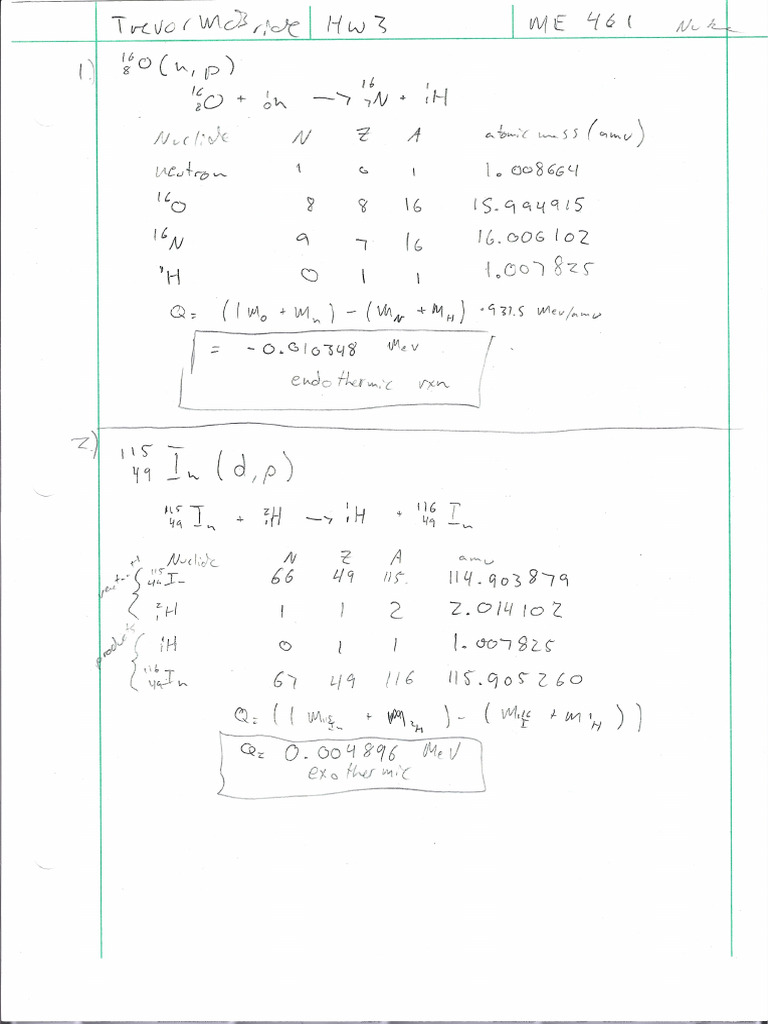 Trevor McBride HW3 ME 461
1.) ¹⁶₈O(n,p)
¹⁶₈O + ¹₀n → ¹⁶₇N + ¹₁H
Nuclide N Z A atomic mass (amu)
neutron 1 0 1 1.008664
¹⁶O 8 8 16 15.994915
¹⁶N 9 7 16 16.006102
¹H 0 1 1 1.007825
Q = ((m₀ + mₙ) - (m_N + m_H) · 931.5 MeV/amu
= -0.010348 MeV
endothermic rxn
2.) ¹¹⁵₄₉In (d,p)
¹¹⁵₄₉In + ²₁H → ¹₁H + ¹¹⁶₄₉In
Nuclide N Z A amu
¹¹⁵₄₉In 66 49 115. 114.903879
²₁H 1 1 2 2.014102
products ¹₁H 0 1 1 1.007825
¹¹⁶₄₉In 67 49 116 115.905260
Q = ((m¹¹⁵In + m²H) - (m¹¹⁶I + m¹H))
Q = 0.004896 MeV
exothermic